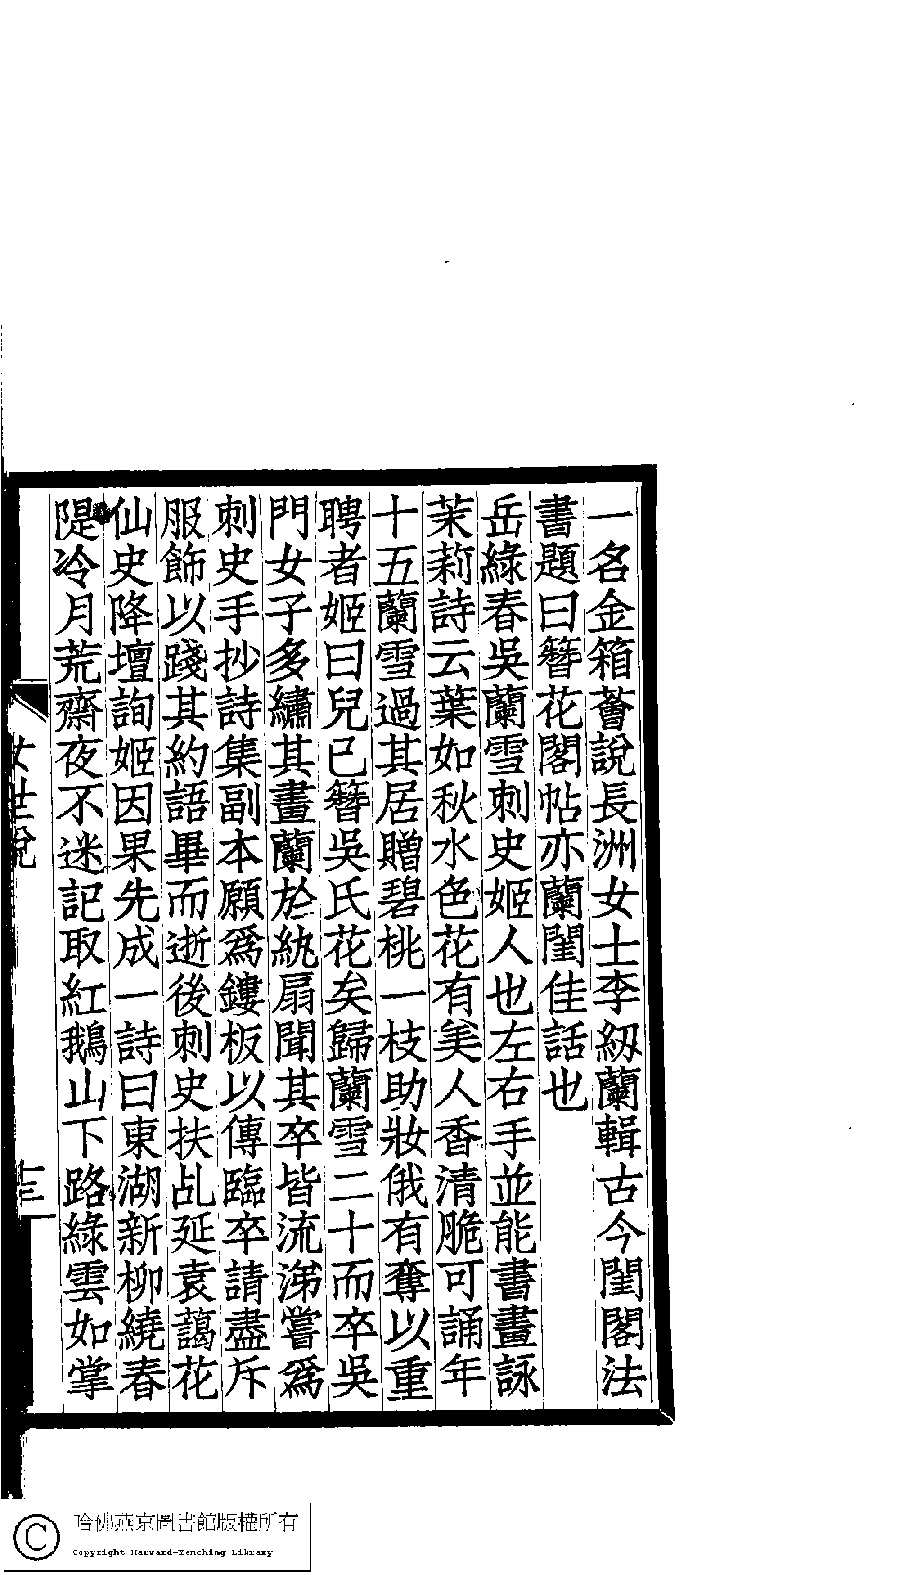 一名金箱薈說長洲女士李紉蘭輯古今閨閣法
書題曰簪花閣帖亦蘭閨佳話也
岳綠春吳蘭雪刺史姬人也左右手並能書畫詠
茉莉詩云葉如秋水色花有美人香清脆可誦年
十五蘭雪過其居贈碧桃一枝助妝俄有奪以重
聘者姬曰兒已簪吳氏花矣歸蘭雪二十而卒吳
門女子多繡其畫蘭於紈扇聞其卒皆流涕嘗爲
刺史手抄詩集副本願爲鏤板以傳臨卒請盡斥
服飾以踐其約語畢而逝後刺史扶乩延袁藹花
仙史降壇詢姬因果先成一詩曰東湖新柳繞春
隄冷月荒齋夜不迷記取紅鵝山下路綠雲如掌
女世說
十三
哈佛燕京圖書館版權所有
Copyright Harvard-Yenching Library